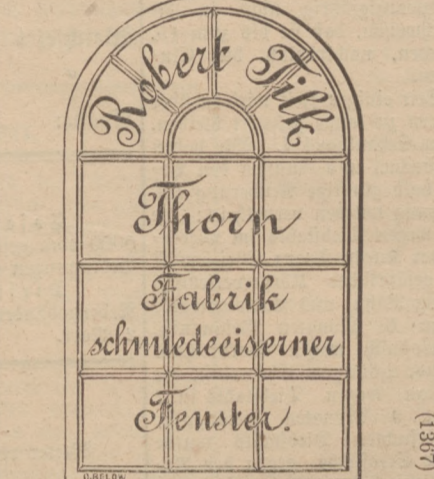 Robert Tilk
Thorn
Fabrik
schmiedeeiserner
Fenster.
(1367)